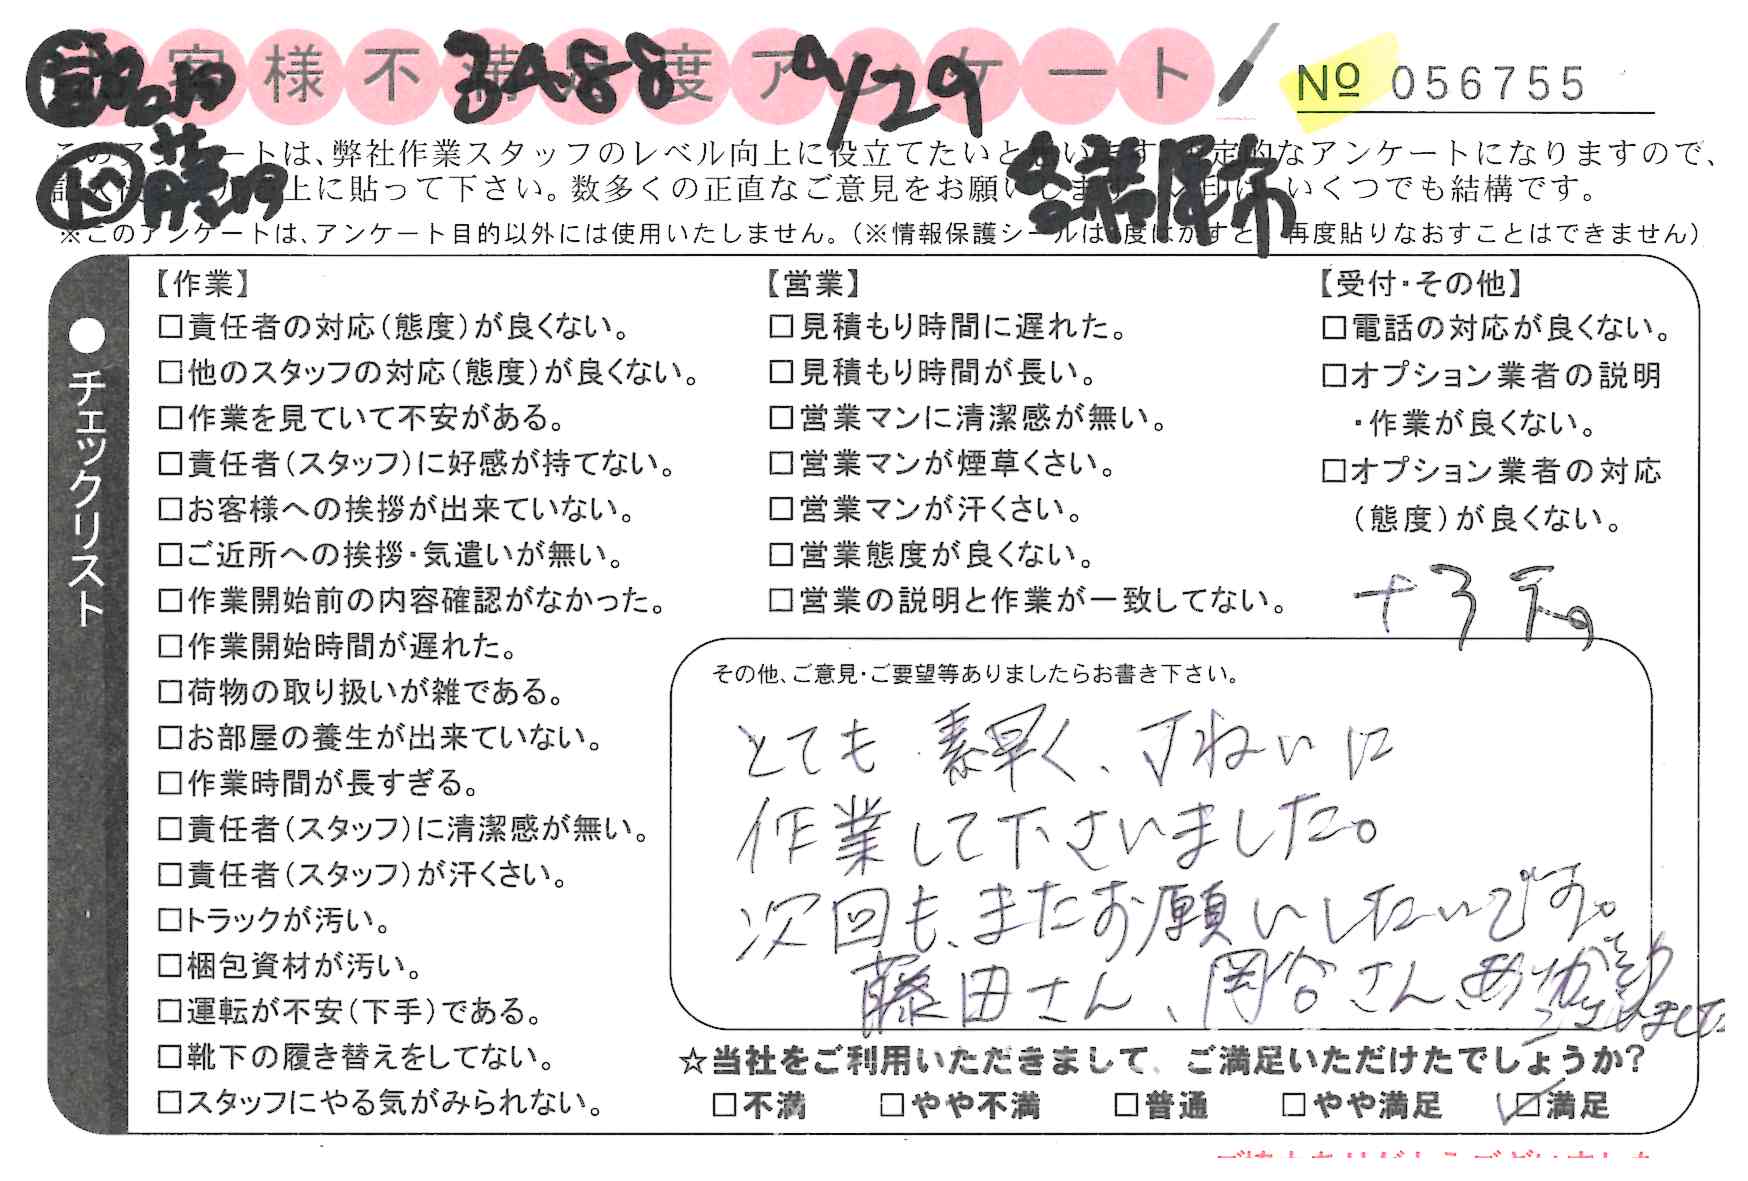 お客様不満足度アンケート
3488 9/29
№ 056755
このアンケートは、弊社作業スタッフのレベル向上に役立てたいと思います。定的なアンケートになりますので、
上に貼って下さい。数多くの正直なご意見をお願いしま いくつでも結構です。
※このアンケートは、アンケート目的以外には使用いたしません。(※情報保護シールは1度はがすと、再度貼りなおすことはできません)
●チェックリスト
【作業】
□責任者の対応(態度)が良くない。
□他のスタッフの対応(態度)が良くない。
□作業を見ていて不安がある。
□責任者(スタッフ)に好感が持てない。
□お客様への挨拶が出来ていない。
□ご近所への挨拶・気遣いが無い。
□作業開始前の内容確認がなかった。
□作業開始時間が遅れた。
□荷物の取り扱いが雑である。
□お部屋の養生が出来ていない。
□作業時間が長すぎる。
□責任者(スタッフ)に清潔感が無い。
□責任者(スタッフ)が汗くさい。
□トラックが汚い。
□梱包資材が汚い。
□運転が不安(下手)である。
□靴下の履き替えをしてない。
□スタッフにやる気がみられない。
【営業】
□見積もり時間に遅れた。
□見積もり時間が長い。
□営業マンに清潔感が無い。
□営業マンが煙草くさい。
□営業マンが汗くさい。
□営業態度が良くない。
□営業の説明と作業が一致してない。
【受付・その他】
□電話の対応が良くない。
□オプション業者の説明
・作業が良くない。
□オプション業者の対応
(態度)が良くない。
その他、ご意見・ご要望等ありましたらお書き下さい。
とても素早く、ていねいに
作業して下さいました。
次回も、またお願いしたいです。
藤田さん、岡谷さんありがとう
ございました
☆当社をご利用いただきまして、ご満足いただけたでしょうか?
□不満 □やや不満 □普通 □やや満足 ☑満足